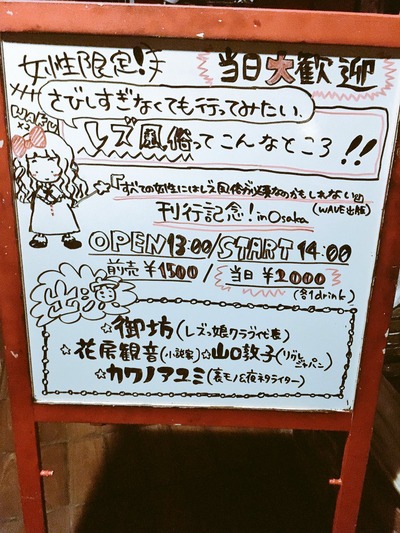 女性限定!!
当日大歓迎
さびしすぎなくても行ってみたい、
WAKU
x2
レズ風俗ってこんなところ!!
☆『すべての女性にはレズ風俗が必要なのかもしれない。』
刊行記念! in Osaka (WAVE出版)
OPEN 13:00/START 14:00
前売 ¥1500/当日 ¥2000
(各1drink)
出演
☆御坊(レズっ娘クラブ代表)
☆花房観音(小説家)☆山口敦子(リりぷとジャパン)
☆カワノアユミ(裏モノ&夜ネタライター)